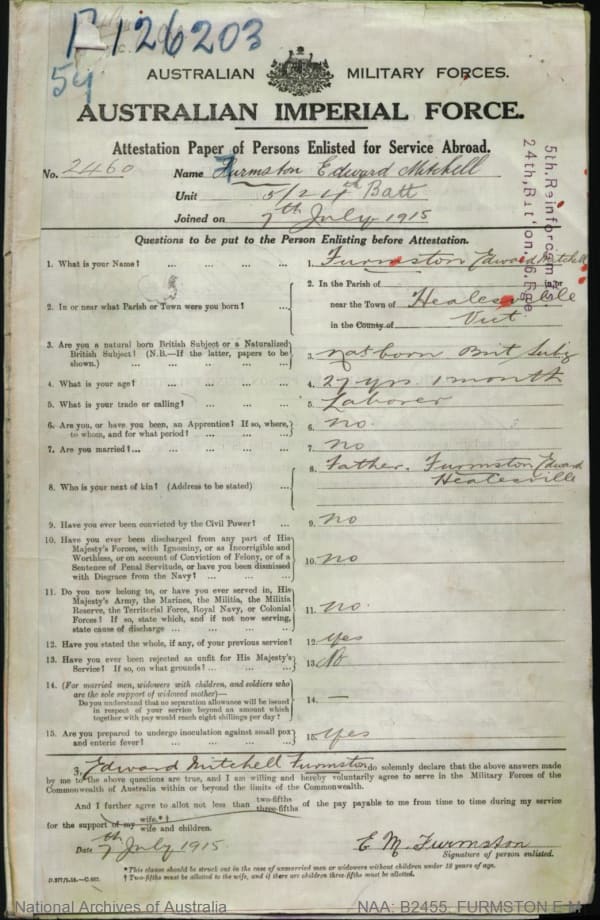 126203
54
AUSTRALIAN MILITARY FORCES.
AUSTRALIAN IMPERIAL FORCE.
Attestation Paper of Persons Enlisted for Service Abroad.
No. 2460 Name Furmston Edward Mitchell
Unit 5/24th Batt
Joined on 7th July 1915
5th Reinforcements
24th, Bat'on, 6.
Questions to be put to the Person Enlisting before Attestation.
1. What is your Name? ... ... ... ... 1. Furmston Edward Mitchell
2. In or near what Parish or Town were you born? ... 2. In the Parish of
near the Town of Healesville
in the County of Vict
3. Are you a natural born British Subject or a Naturalized British Subject? (N.B.—If the latter, papers to be shown.) ... ... ... ... 3. nat born Brit Subj
4. What is your age? ... ... ... ... 4. 27 yrs. 1 month
5. What is your trade or calling? ... ... ... 5. Laborer
6. Are you, or have you been, an Apprentice? If so, where, to whom, and for what period? ... ... ... 6. no.
7. Are you married?... ... ... ... ... 7. no
8. Who is your next of kin? (Address to be stated) ... 8. Father. Furmston Edward
Healesville
9. Have you ever been convicted by the Civil Power? ... 9. no
10. Have you ever been discharged from any part of His Majesty's Forces, with Ignominy, or as Incorrigible and Worthless, or on account of Conviction of Felony, or of a Sentence of Penal Servitude, or have you been dismissed with Disgrace from the Navy? ... ... ... 10. no
11. Do you now belong to, or have you ever served in, His Majesty's Army, the Marines, the Militia, the Militia Reserve, the Territorial Force, Royal Navy, or Colonial Forces? If so, state which, and if not now serving, state cause of discharge ... ... ... ... 11. no.
12. Have you stated the whole, if any, of your previous service? 12. yes
13. Have you ever been rejected as unfit for His Majesty's Service? If so, on what grounds? ... ... ... 13. No
14. (For married men, widowers with children, and soldiers who are the sole support of widowed mother)—
Do you understand that no separation allowance will be issued in respect of your service beyond an amount which together with pay would reach eight shillings per day? 14. —
15. Are you prepared to undergo inoculation against small pox and enteric fever? ... ... ... ... 15. yes
I, Edward Mitchell Furmston do solemnly declare that the above answers made
by me to the above questions are true, and I am willing and hereby voluntarily agree to serve in the Military Forces of the
Commonwealth of Australia within or beyond the limits of the Commonwealth.
And I further agree to allot not less than two-fifths three-fifths of the pay payable to me from time to time during my service
for the support of my wife.*† wife and children.
Date 7th July 1915. E. M. Furmston
Signature of person enlisted.
*This clause should be struck out in the case of unmarried men or widowers without children under 18 years of age.
† Two-fifths must be allotted to the wife, and if there are children three-fifths must be allotted.
National Archives of Australia
NAA: B2455, FURMSTON E M